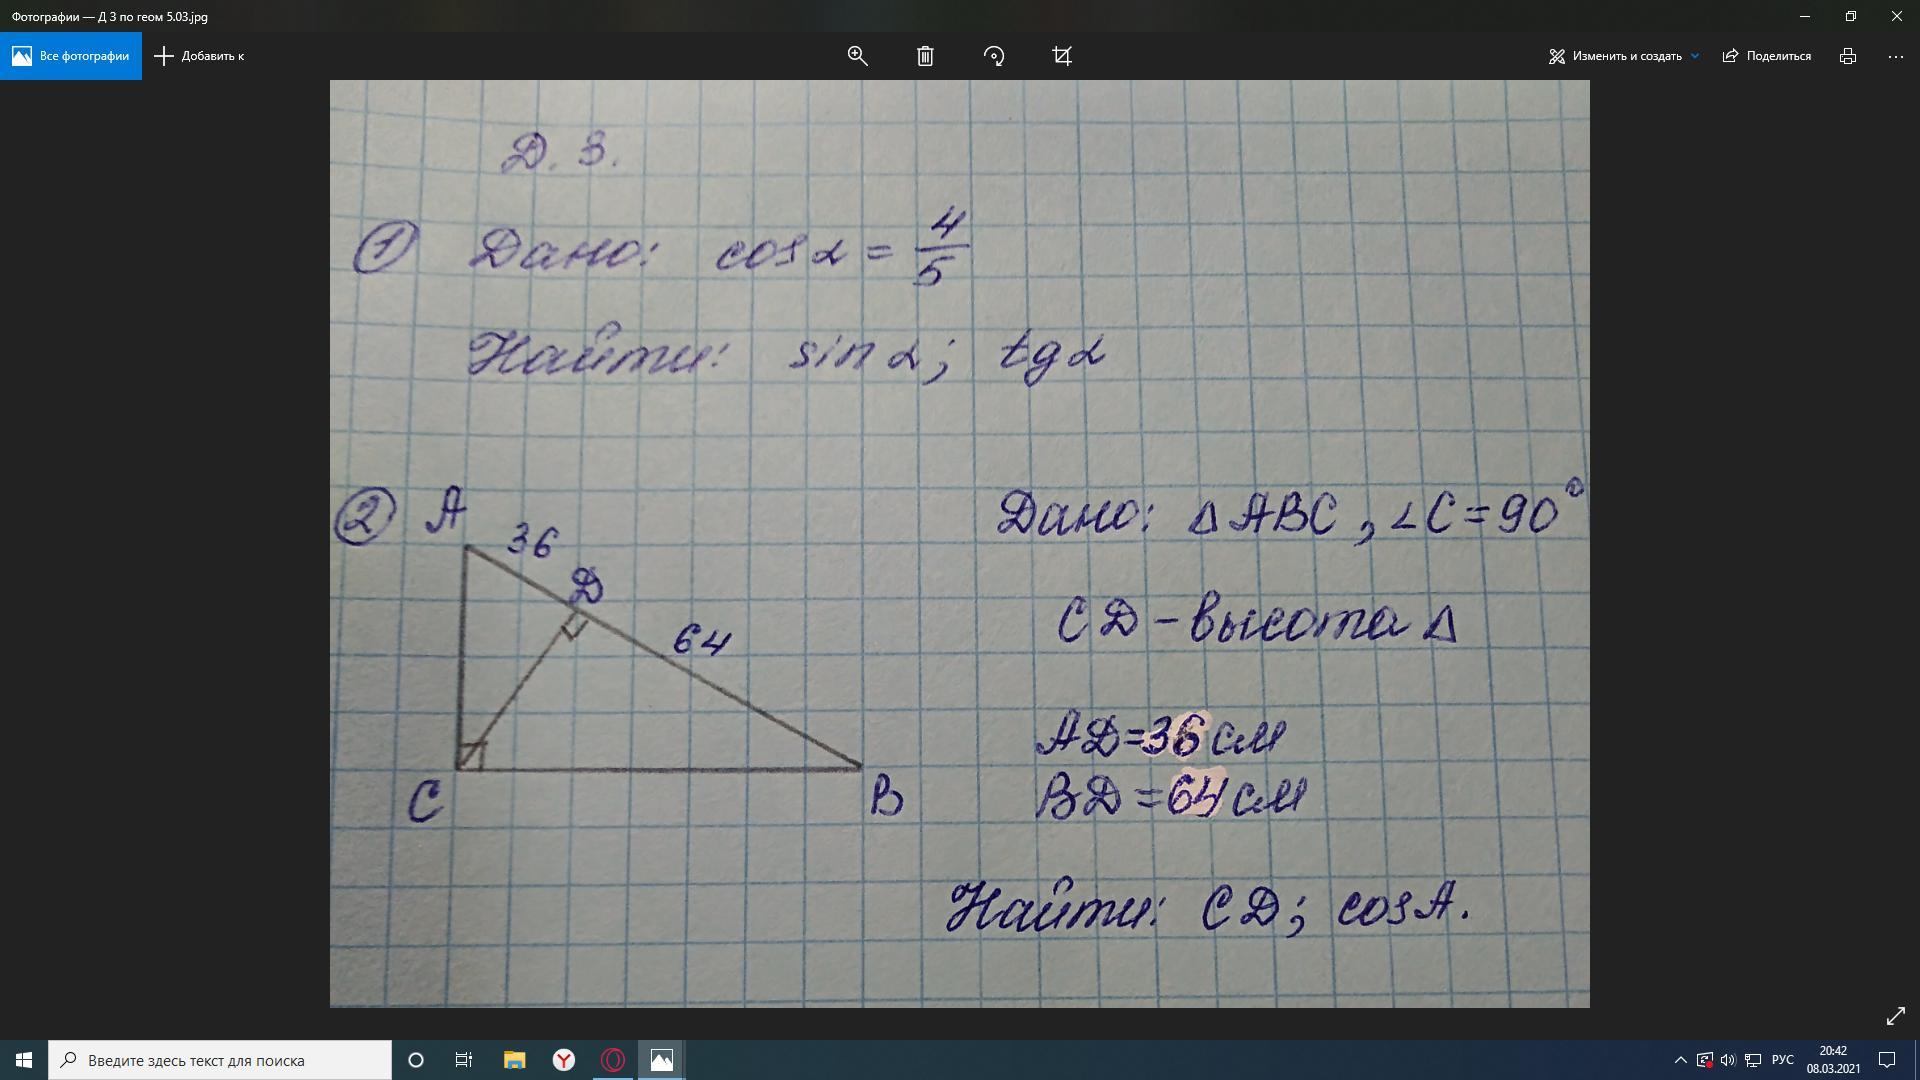 Фотографии — Д З по геом 5.03.jpg
Все фотографии
Добавить к
Изменить и создать
Поделиться
Д. З.
1 Дано: cosα = 4/5
Найти: sinα; tgα
2
A
36
D
64
C
B
Дано: △ABC, ∠C=90°
CD – высота △
AD=36 см
BD=64 см
Найти: CD; cosA.
Введите здесь текст для поиска
РУС
20:42
08.03.2021